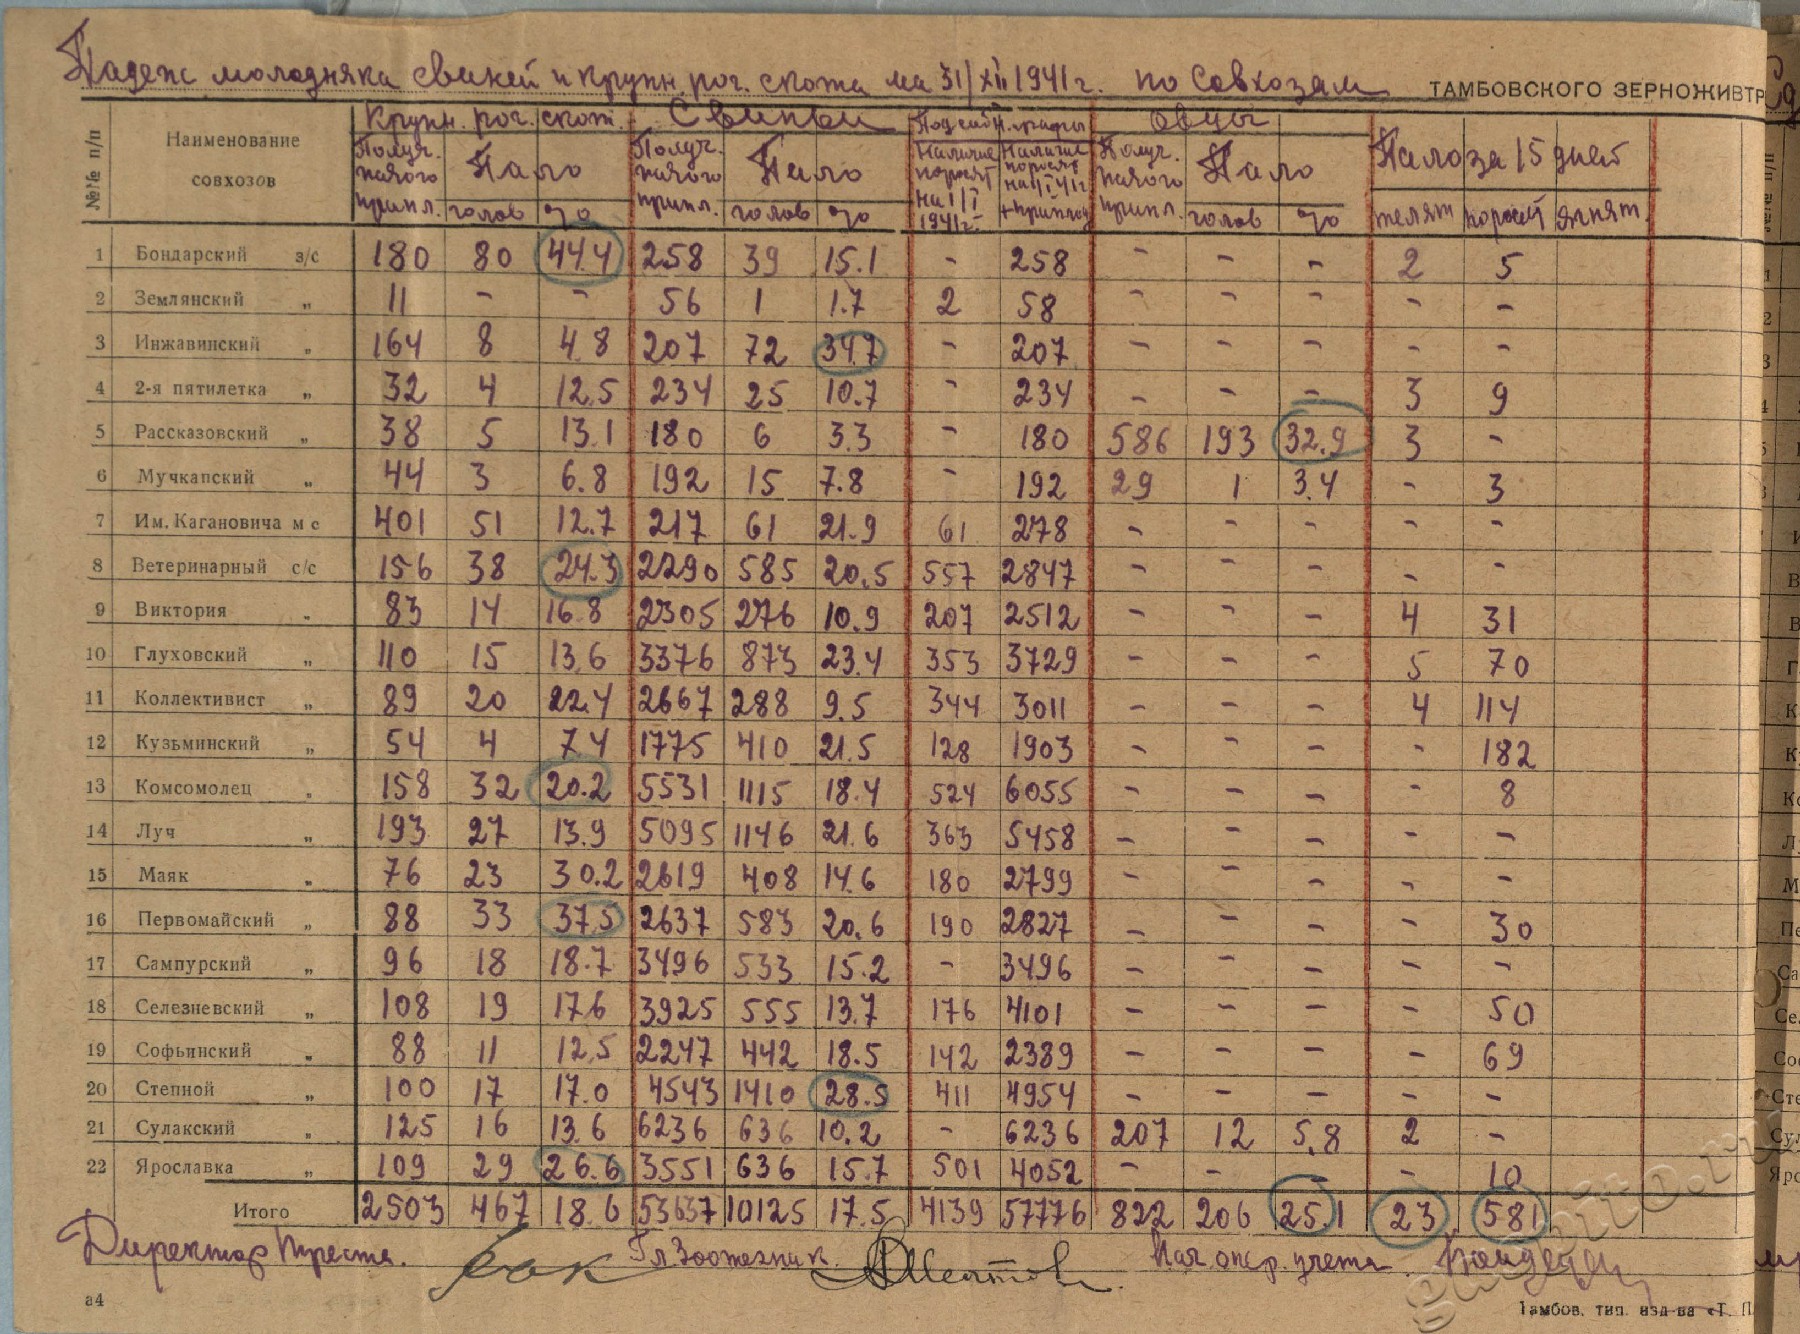 Падеж молодняка свиней и крупн. рог. скота на 31/XII 1941 г. по совхозам ТАМБОВСКОГО ЗЕРНОЖИВТР
№№ п/п Наименование совхозов Крупн. рог. скот. Свиньи Подсобн. графы Овцы Пало за 15 дней
Получ. живого припл. Пало Получ. живого припл. Пало Наличие поросят на 1/I 1941 г. Наличие поросят на 1/I 41 г. + приплод Получ. живого припл. Пало
голов % голов % голов % телят поросят ягнят.
1 Бондарский з/с 180 80 44.4 258 39 15.1 - 258 - - - 2 5
2 Землянский „ 11 - - 56 1 1.7 2 58 - - - - -
3 Инжавинский „ 164 8 4.8 207 72 34.7 - 207 - - - - -
4 2-я пятилетка „ 32 4 12.5 234 25 10.7 - 234 - - - 3 9
5 Рассказовский „ 38 5 13.1 180 6 3.3 - 180 586 193 32.9 3 -
6 Мучкапский „ 44 3 6.8 192 15 7.8 - 192 29 1 3.4 - 3
7 Им. Кагановича м с 401 51 12.7 217 61 21.9 61 278 - - - - -
8 Ветеринарный с/с 156 38 24.3 2290 585 20.5 557 2847 - - - - -
9 Виктория „ 83 14 16.8 2305 276 10.9 207 2512 - - - 4 31
10 Глуховский „ 110 15 13.6 3376 873 23.4 353 3729 - - - 5 70
11 Коллективист „ 89 20 22.4 2667 288 9.5 344 3011 - - - 4 114
12 Кузьминский „ 54 4 7.4 1775 410 21.5 128 1903 - - - - 182
13 Комсомолец „ 158 32 20.2 5531 1115 18.4 524 6055 - - - - 8
14 Луч „ 193 27 13.9 5095 1146 21.6 363 5458 - - - - -
15 Маяк „ 76 23 30.2 2619 408 14.6 180 2799 - - - - -
16 Первомайский „ 88 33 37.5 2637 583 20.6 190 2827 - - - - 30
17 Сампурский „ 96 18 18.7 3496 533 15.2 - 3496 - - - - -
18 Селезневский „ 108 19 17.6 3925 555 13.7 176 4101 - - - - 50
19 Софьинский „ 88 11 12.5 2247 442 18.5 142 2389 - - - - 69
20 Степной „ 100 17 17.0 4543 1410 28.5 411 4954 - - - - -
21 Сулакский „ 125 16 13.6 6236 636 10.2 - 6236 207 12 5.8 2 -
22 Ярославка „ 109 29 26.6 3551 636 15.7 501 4052 - - - - 10
Итого 2503 467 18.6 53637 10125 17.5 4139 57776 822 206 25.1 23 581
Директор треста. Гл Зоотехник Нач опер. учета
а4 Тамбов. тип. изд-ва «Т. П